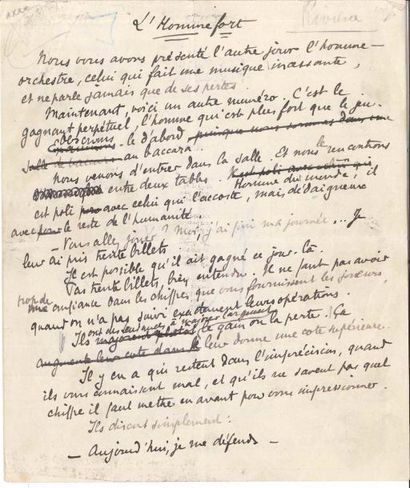 L'Homme fort
Nous vous avons présenté l'autre jour l'homme-
orchestre, celui qui fait une musique incessante,
et ne parle jamais que de ses pertes.
Maintenant, voici un autre numéro. C'est le
gagnant perpétuel, l'homme qui est plus fort que le jeu.
Observons-le d'abord puisque nous sommes dans une
salle de baccara au baccara.
Nous venons d'entrer dans la salle. Et nous le rencontrons
entre deux tables. Il est poli avec celui qui
Homme du monde, il
est poli avec celui qui l'accoste, mais dédaigneux
avec le reste de l'humanité.
— Vous allez jouer ? Moi, j'ai fini ma journée... Je
leur ai pris trente billets.
Il est possible qu'il ait gagné ce jour-là.
Pas trente billets, bien entendu. Il ne faut pas avoir
trop de confiance dans les chiffres que vous fournissent les joueurs,
quand on n'a pas suivi exactement leurs opérations.
Ils ont des tendances à
Ils majorent le gain ou la perte. Ça
augmente leur cote dans le leur donne une cote supérieure.
Il y en a qui restent dans l'imprécision, quand
ils vous connaissent mal, et qu'ils ne savent pas quel
chiffre il faut mettre en avant pour vous impressionner.
Ils disent simplement :
— Aujourd'hui, je me défends —